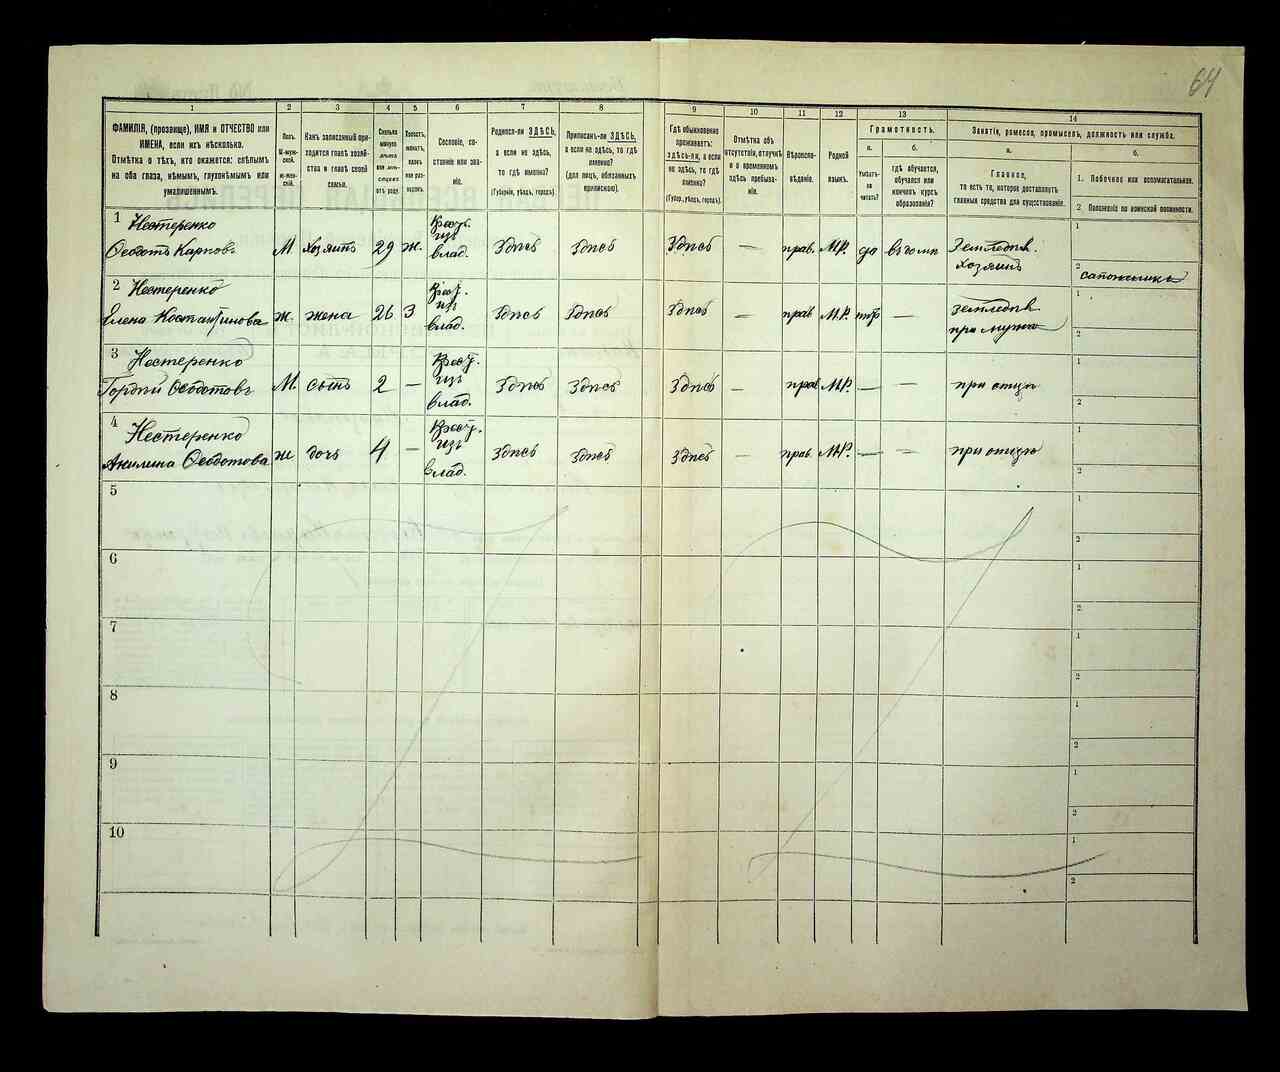 64
1 2 3 4 5 6 7 8 9 10 11 12 13 14
ФАМИЛІЯ, (прозвище), ИМЯ и ОТЧЕСТВО или
ИМЕНА, если ихъ нѣсколько.
Отмѣтка о тѣхъ, кто окажется: слѣпымъ
на оба глаза, нѣмымъ, глухонѣмымъ или
умалишеннымъ.
Полъ.
М-муж-
ской.
ж-жен-
скій.
Какъ записанный при-
ходится главѣ хозяй-
ства и главѣ своей
семьи.
Сколько
минуло
лѣтъ
или мѣ-
сяцевъ
отъ роду.
Холостъ,
женатъ,
вдовъ
или раз-
веденъ.
Сословіе, со-
стояніе или зва-
ніе.
Родился-ли ЗДѢСЬ,
а если не здѣсь,
то гдѣ именно?
(Губернія, уѣздъ, городъ).
Приписанъ-ли ЗДѢСЬ,
а если не здѣсь, то гдѣ
именно?
(Для лицъ, обязанныхъ
припискою).
Гдѣ обыкновенно
проживаетъ:
здѣсь-ли, а если
не здѣсь, то гдѣ
именно?
(Губер., уѣздъ, городъ).
Отмѣтка объ
отсутствіи, отлучкѣ
и о временномъ
здѣсь пребыва-
ніи.
Вѣроиспо-
вѣданіе.
Родной
языкъ.
Грамотность.
а.
Умѣетъ-
ли
читать?
б.
гдѣ обучается,
обучался или
кончилъ курсъ
образованія?
Занятіе, ремесло, промыселъ, должность или служба.
а.
Главное,
то есть то, которое доставляетъ
главныя средства для существованія.
б.
1. Побочное или вспомогательное.
2 Положеніе по воинской повинности.
1 Нестеренко Крест. 1
Ѳеодотъ Карповъ М. хозяинъ 29 ж. изъ влад. Здѣсь Здѣсь Здѣсь — прав. М.Р. да въ домѣ Земледѣл.
хозяинъ 2 сапожникъ
2 Нестеренко Крест. 1
Елена Костантинова ж. жена 26 З изъ влад. Здѣсь Здѣсь Здѣсь — прав М.Р. — земледѣл.
при мужѣ 2
3 Нестеренко Крест. 1
Гордѣй Ѳеодотовъ М. сынъ 2 — изъ влад. Здѣсь Здѣсь Здѣсь — прав М.Р. — — при отцѣ
2
4 Нестеренко Крест. 1
Ѳеодотова ж дочь 4 — изъ влад. Здѣсь Здѣсь Здѣсь — прав. М.Р. — — при отцѣ
2
5 1
2
6 1
2
7 1
2
8 1
2
9 1
2
10 1
2